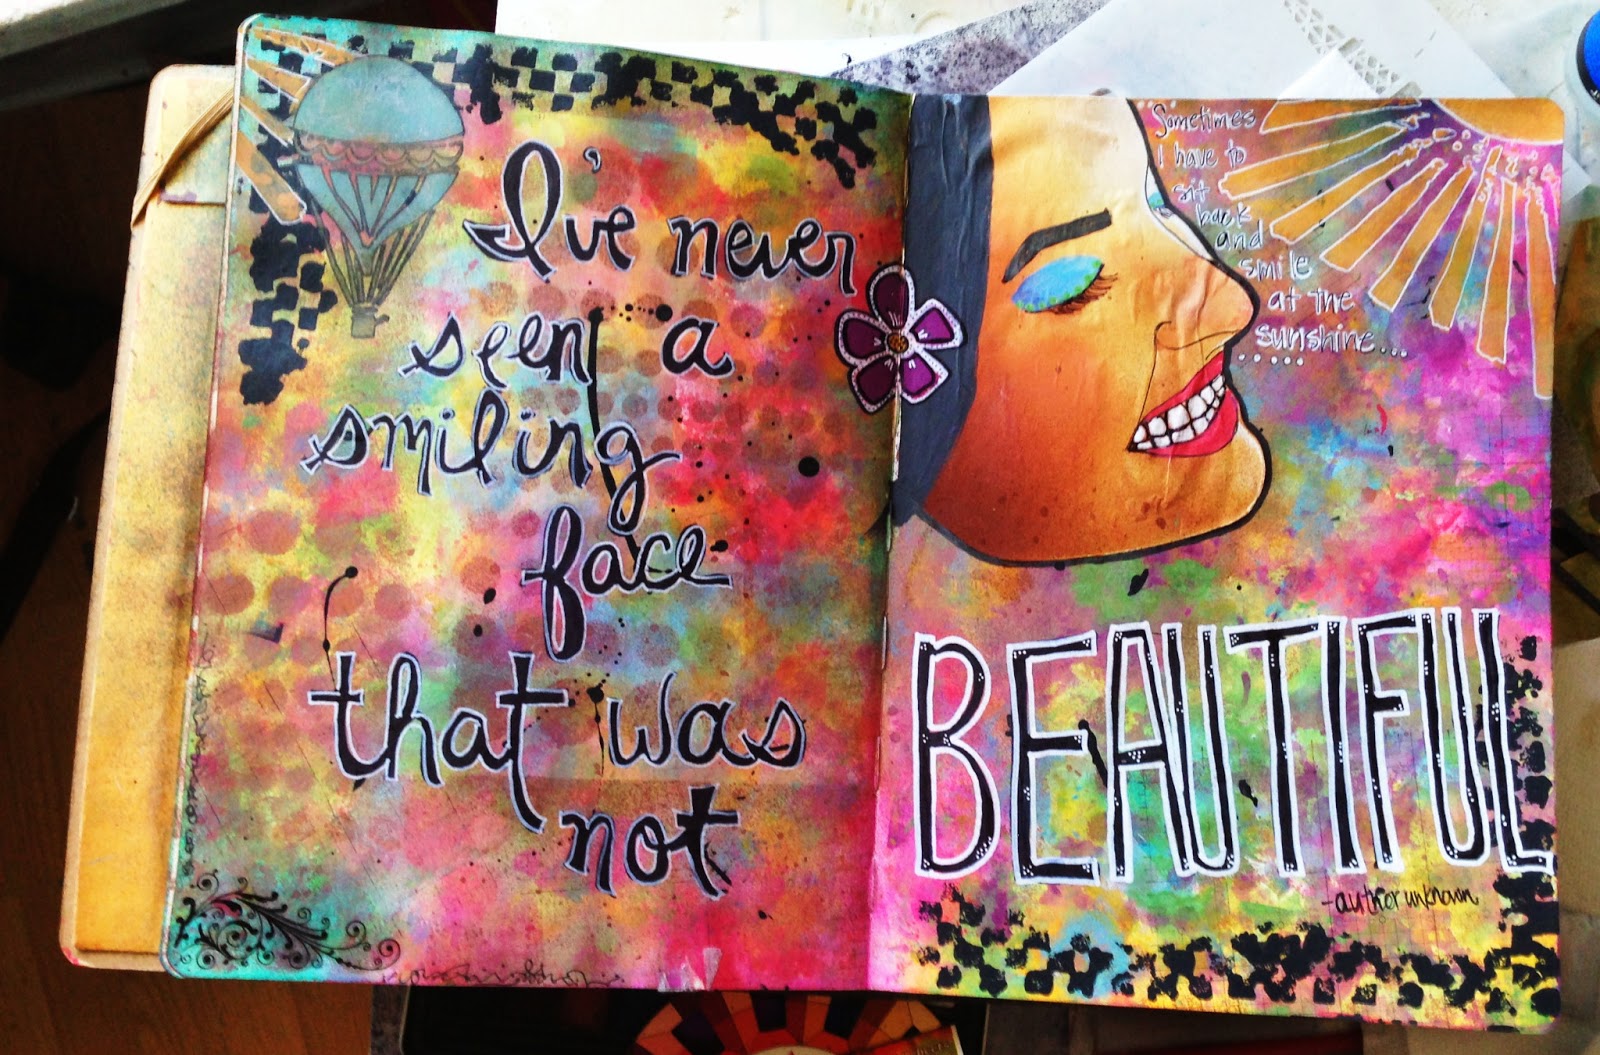 I've never
seen a
smiling
face
that was
not
Sometimes
I have to
sit
back
and
smile
at the
sunshine...
BEAUTIFUL
-author unknown